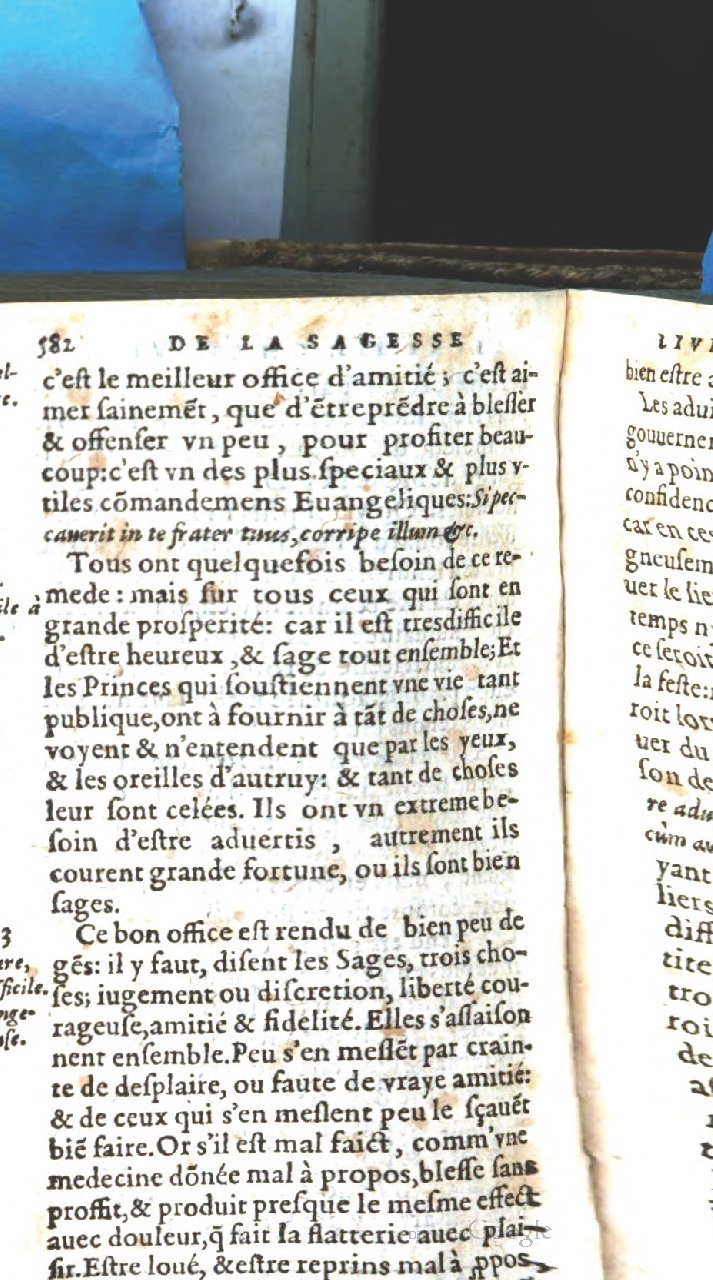 582 DE LA SAGESSE
c'eſt le meilleur office d'amitié ; c'eſt ai-
mer ſainemẽt, que d'ẽtreprẽdre à bleſſer
& offenſer vn peu, pour profiter beau-
coup:c'eſt vn des plus ſpeciaux & plus v-
tiles cõmandemens Euangeliques:Si pec-
cauerit in te frater tuus,corripe illum &c.
Tous ont quelquefois beſoin de ce re-
mede : mais ſur tous ceux qui ſont en
grande proſperité: car il eſt tresdifficile
d'eſtre heureux ,& ſage tout enſemble;Et
les Princes qui ſouſtiennent vne vie tant
publique,ont à fournir à tãt de choſes,ne
voyent & n'entendent que par les yeux,
& les oreilles d'autruy: & tant de choſes
leur ſont celées. Ils ont vn extreme be-
ſoin d'eſtre aduertis , autrement ils
courent grande fortune, ou ils ſont bien
ſages.
Ce bon office eſt rendu de bien peu de
gẽs: il y faut, diſent les Sages, trois cho-
ſes; iugement ou diſcretion, liberté cou-
rageuſe,amitié & fidelité.Elles s'aſſaiſon
nent enſemble.Peu s'en meſlẽt par crain-
te de deſplaire, ou faute de vraye amitié:
& de ceux qui s'en meſlent peu le ſçauẽt
biẽ faire.Or s'il eſt mal faict, comm'vne
medecine dõnée mal à propos,bleſſe ſans
proffit,& produit preſque le meſme effect
auec douleur,q̃ fait la flatterie auec plai-
ſir.Eſtre loué, &eſtre reprins mal à ꝓpos,
3
à
LIV
bien eſtre
Les adui
gouuerner
n'y a poin
confidenc
car en ces
gneuſem
uer le lie
temps n
ce ſeroit
la feſte:
roit lors
uer du
ſon de
re adu
cùm au
yant
liers
diff
tite
tro
roi
de
Google